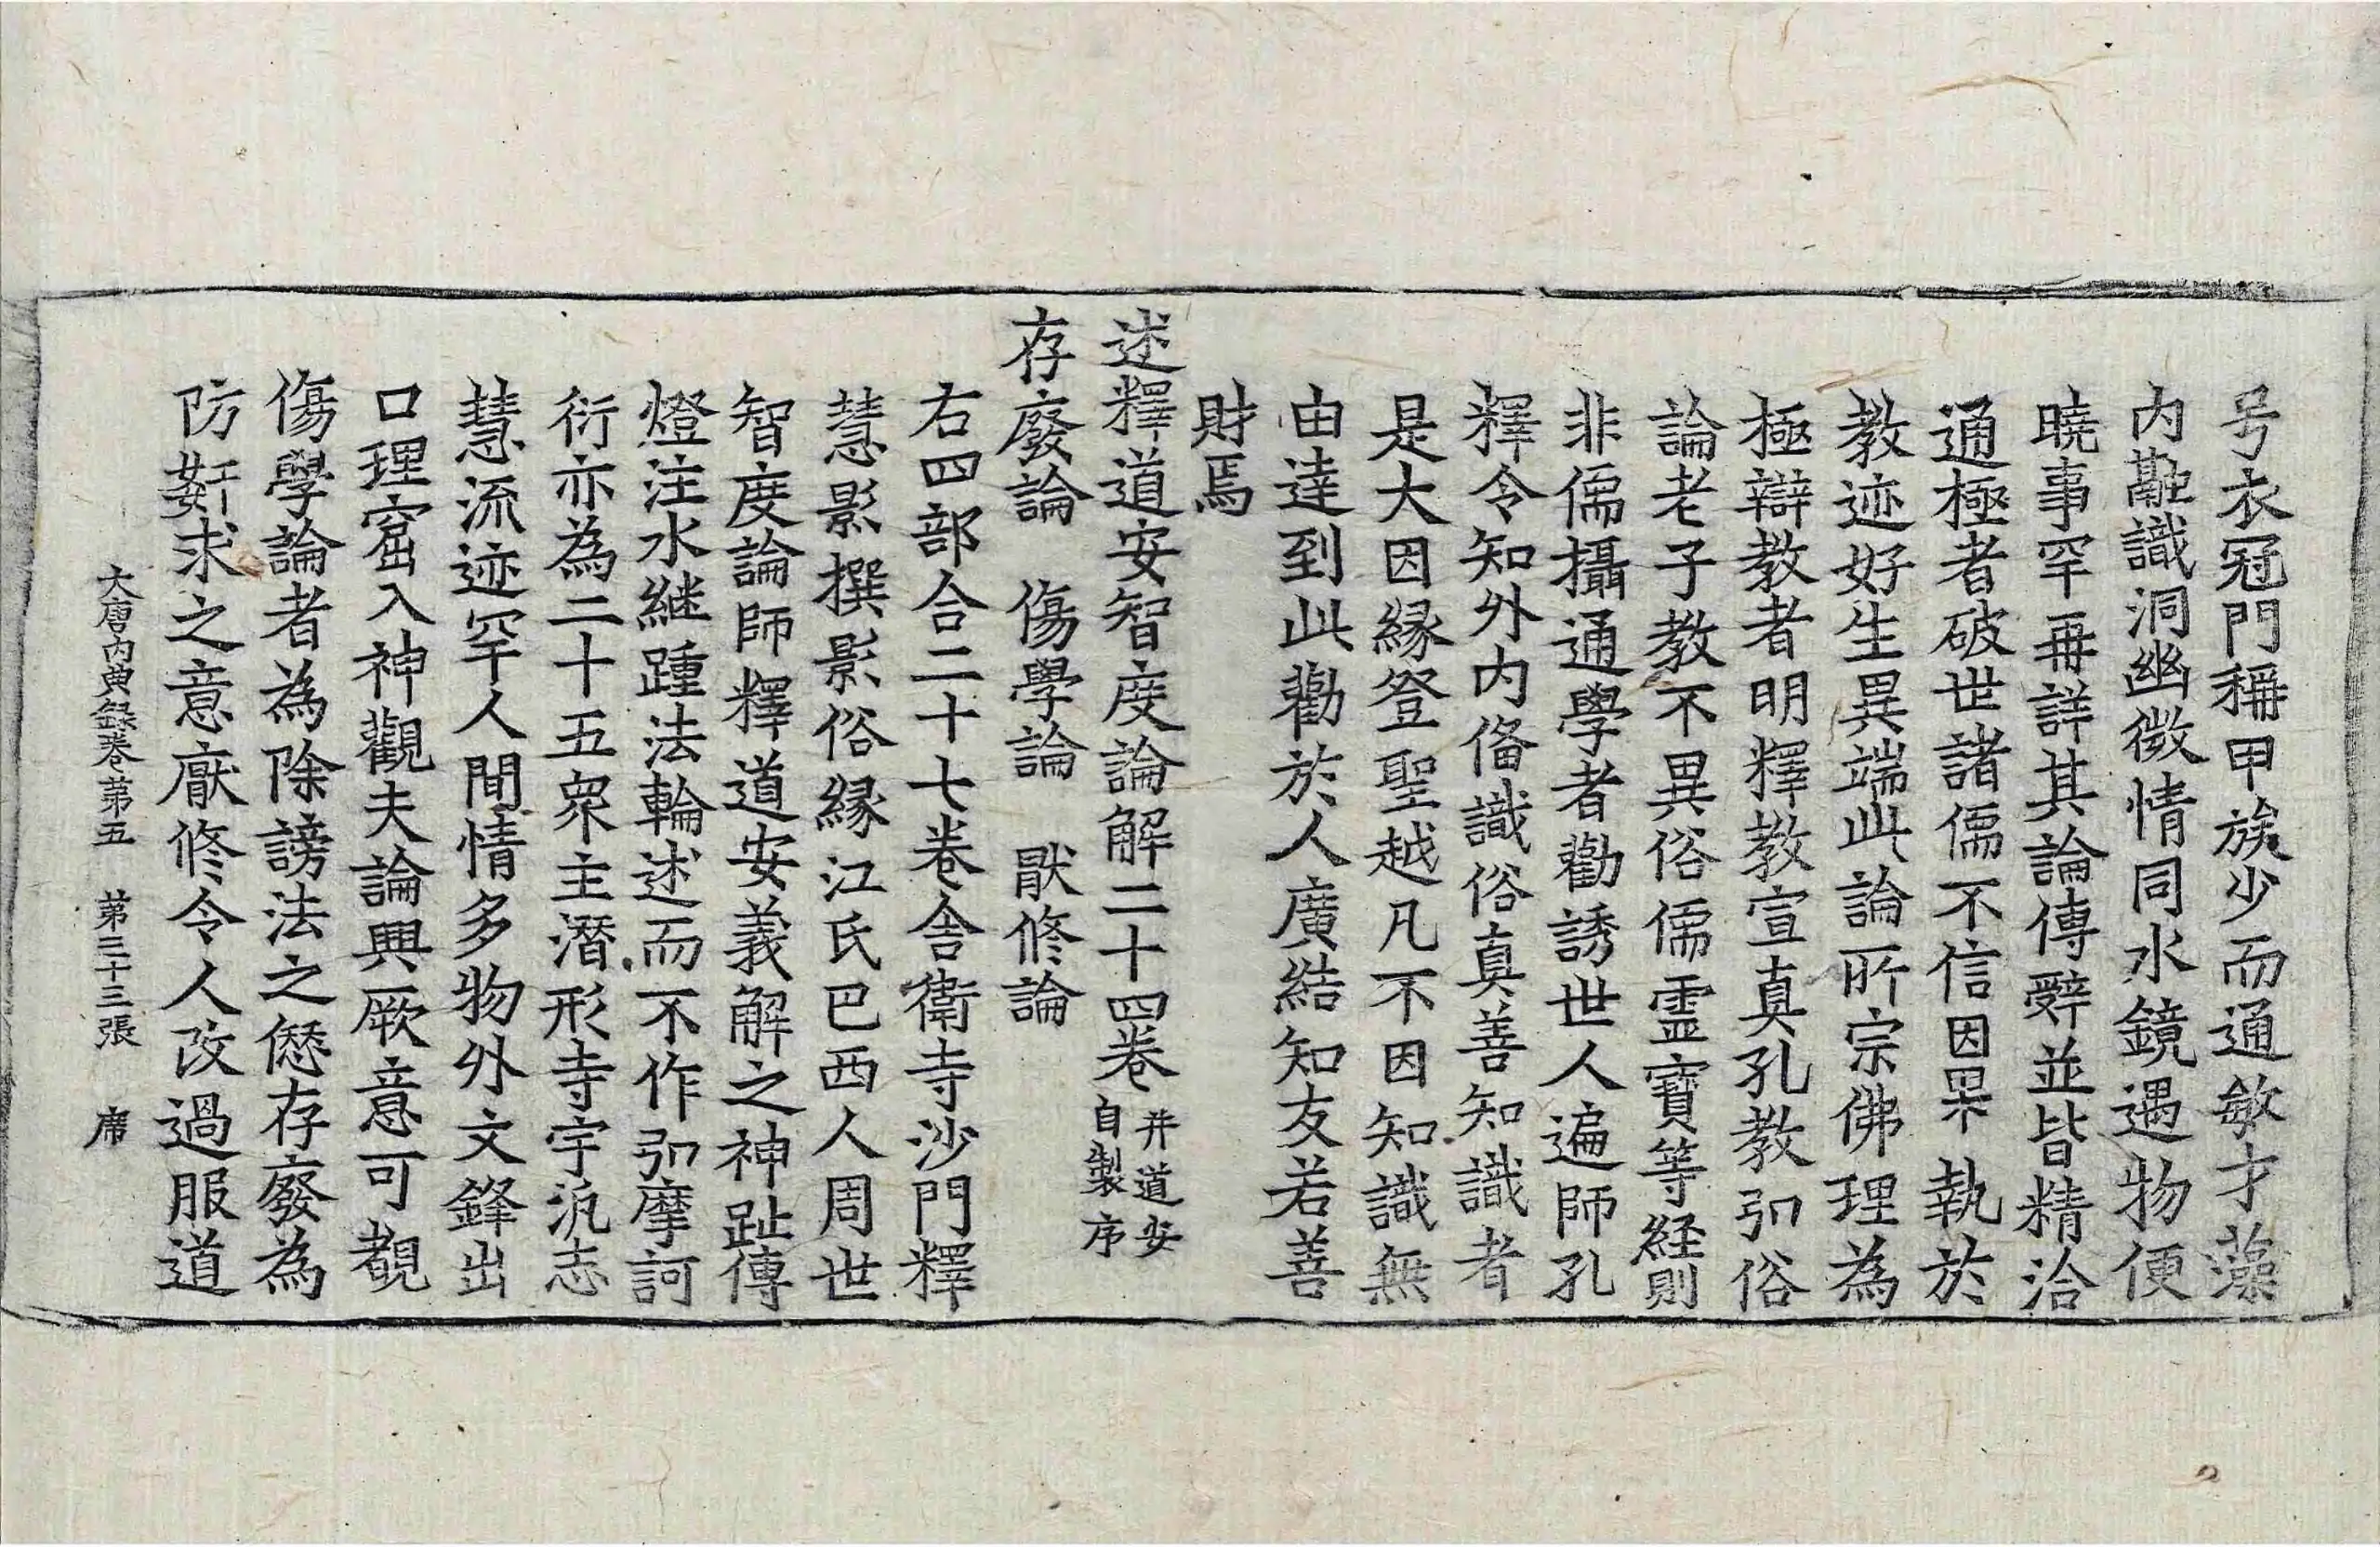 号衣冠門稱甲族少而通敏才藻
内融識洞幽微情同水鏡遇物便
曉事罕再詳其論傳辭並皆精洽
通極者破世諸儒不信因果執於
教迹好生異端此論所宗佛理為
極辯教者明釋教宣真孔教引俗
論老子教不異俗儒靈寶等經則
非儒攝通學者勸誘世人遍師孔
釋令知外内俻識俗真善知識者
是大因縁登聖越凡不因知識無
由達到此勸於人廣結知友若善
財焉
述釋道安智度論解二十四卷 并道安自製序
存廢論 傷學論 猒修論
右四部合二十七卷舎衛寺沙門釋
慧影撰影俗縁江氏巴西人周世
智度論師釋道安義解之神趾傳
燈注水継踵法輪述而不作引摩訶
衍亦為二十五衆主潜形寺宇汎志
慧流迹罕人間情多物外文鋒出
口理窟入神觀夫論興厥意可覩
傷學論者為除謗法之愆存廢為
防姧求之意厭修令人改過服道
大唐内典録卷第五 第三十三張 席